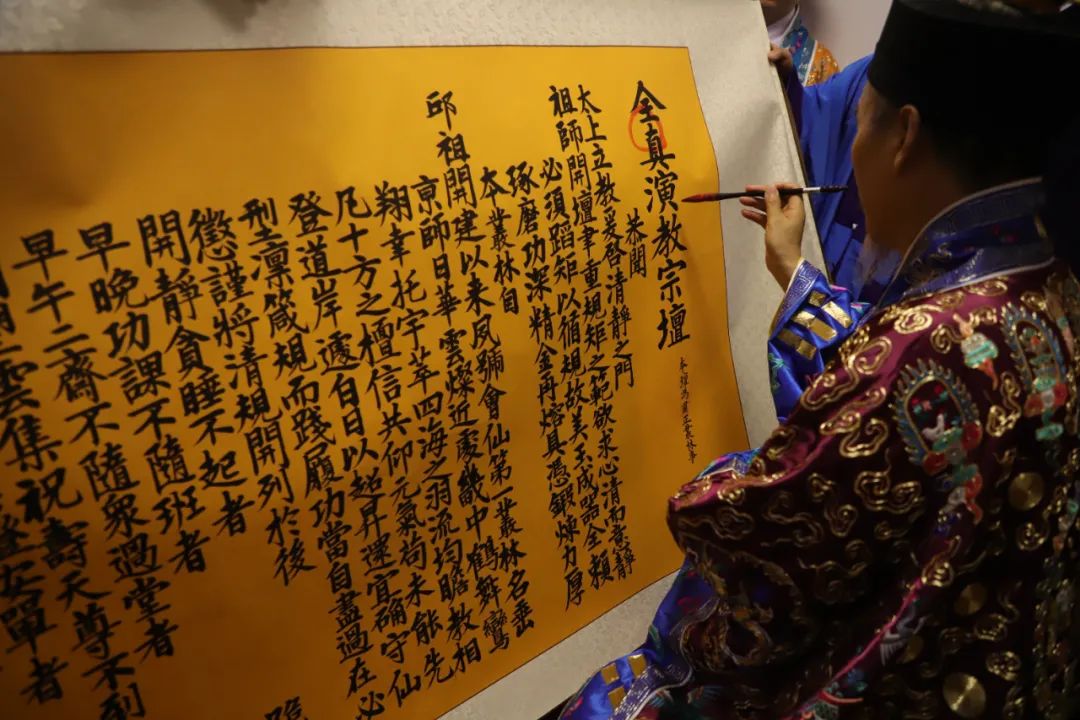 全真演教宗壇
恭聞
太上立教爰啓清靜之門
祖師開壇聿重規矩之範欲求心清而意靜
必須蹈矩以循規故美玉成器全賴
琢磨功深精金再熔具憑鍛煉力厚
本叢林自
邱祖開建以來夙號會仙第一叢林名垂
京師日華雲燦近處畿中鶴舞鸞
翔幸托宇萃四海之羽流均瞻教相
凡十方之檀信共仰元氣苟未能先
登道岸遽白日以超昇速宜彌守仙
型凜箴規而踐履功當自盡過在必
懲謹將清規開列於後
開靜貪睡不起者
早晚功課不隨班者
早午二齋不隨眾過堂者
雲集祝壽天尊不到
安單者